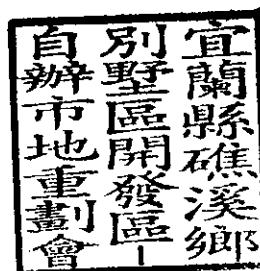 宜蘭縣礁溪鄉
別墅區開發區一
自辦市地重劃會